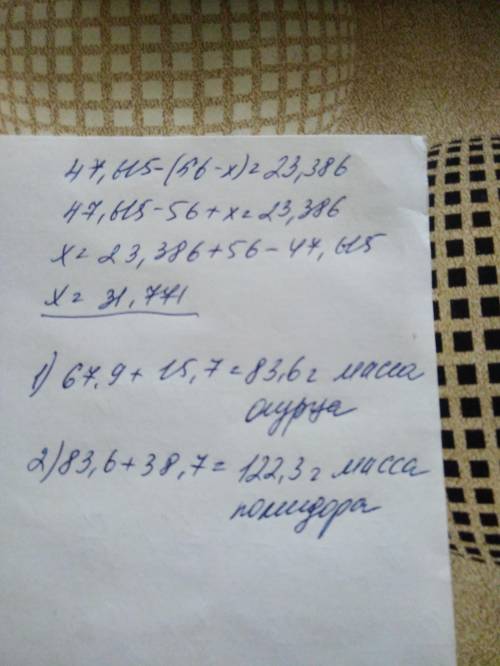 47,615-(56-x)=23,386
47,615-56+x=23,386
x=23,386+56-47,615
x=31,771
1) 67,9+15,7=83,6 г масса
огурца
2) 83,6+38,7=122,3 г масса
помидора